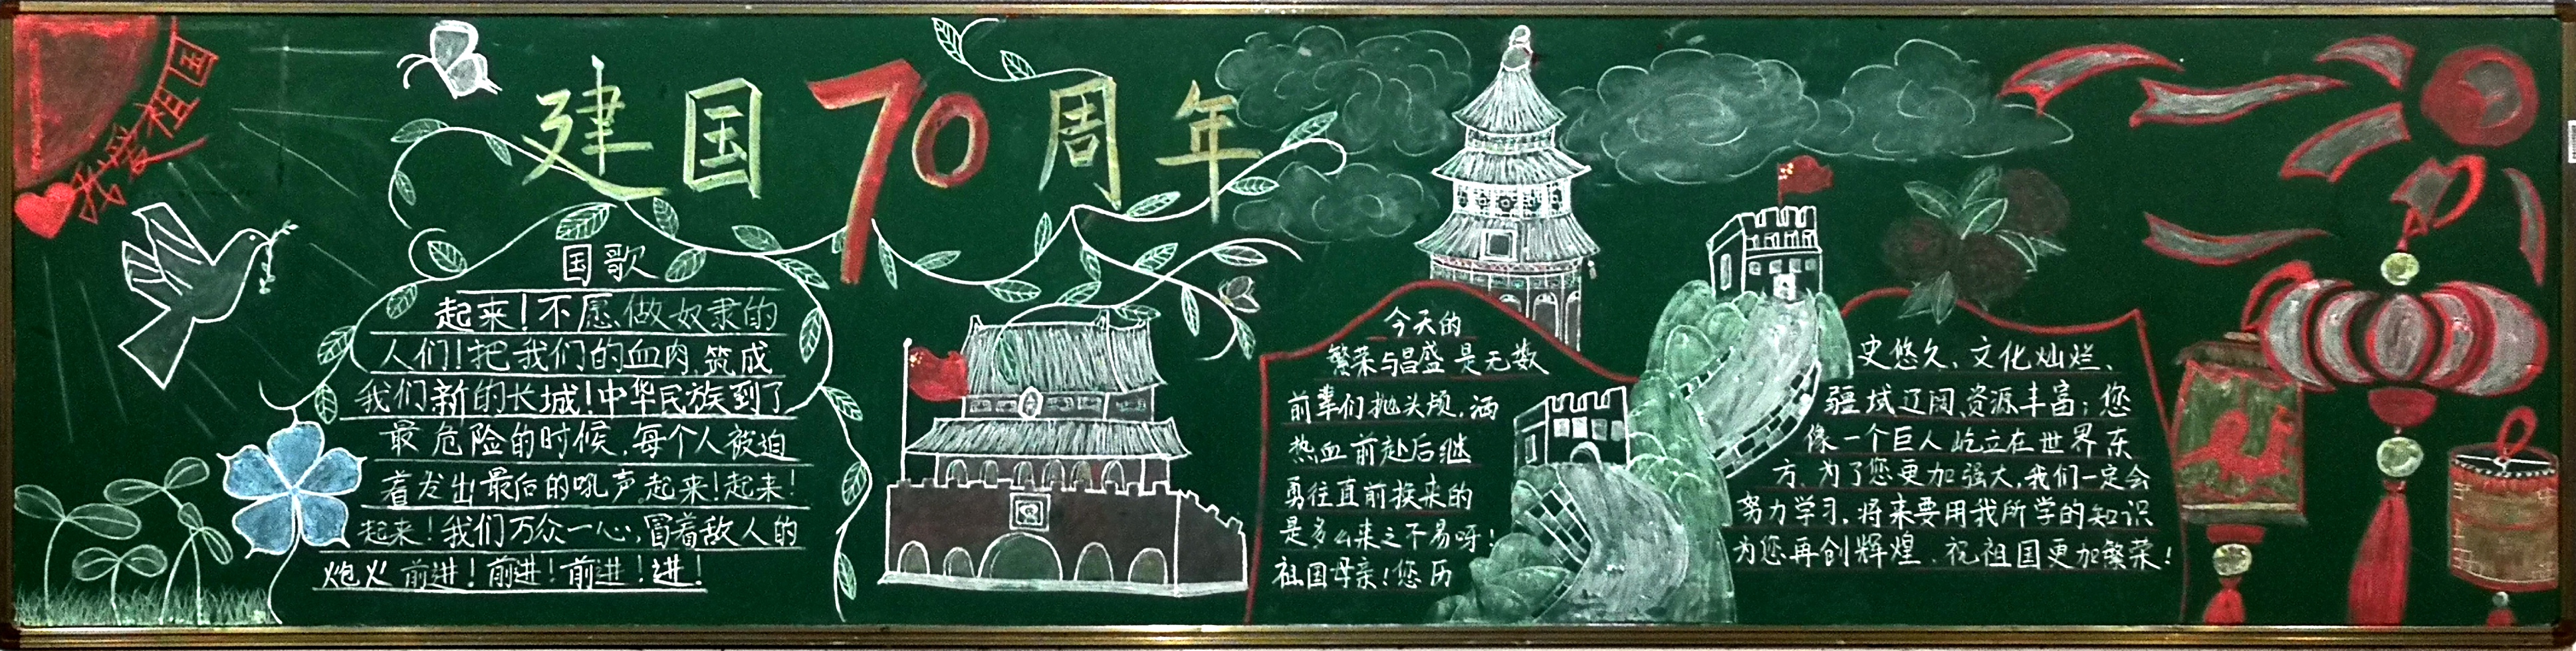 我爱祖国
建国70周年
国歌
起来！不愿做奴隶的
人们！把我们的血肉，筑成
我们新的长城！中华民族到了
最危险的时候，每个人被迫
着发出最后的吼声。起来！起来！
起来！我们万众一心，冒着敌人的
炮火 前进！前进！前进！进！
今天的
繁荣与昌盛是无数
前辈们抛头颅，洒
热血前赴后继
勇往直前换来的
是多么来之不易呀！
祖国母亲！您历
史悠久、文化灿烂、
疆域辽阔、资源丰富；您
像一个巨人屹立在世界东
方。为了您更加强大，我们一定会
努力学习，将来要用我所学的知识
为您再创辉煌、祝祖国更加繁荣！